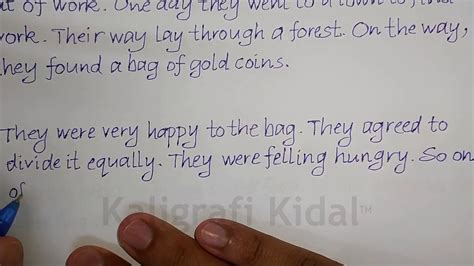 of work. One day they went to a town to, find
work. Their way lay through a forest. On the way,
they found a bag of gold coins.
They were very happy to the bag. They agreed to
divide it equally. They were felling hungry. So on
of
Kaligrafi Kidal™